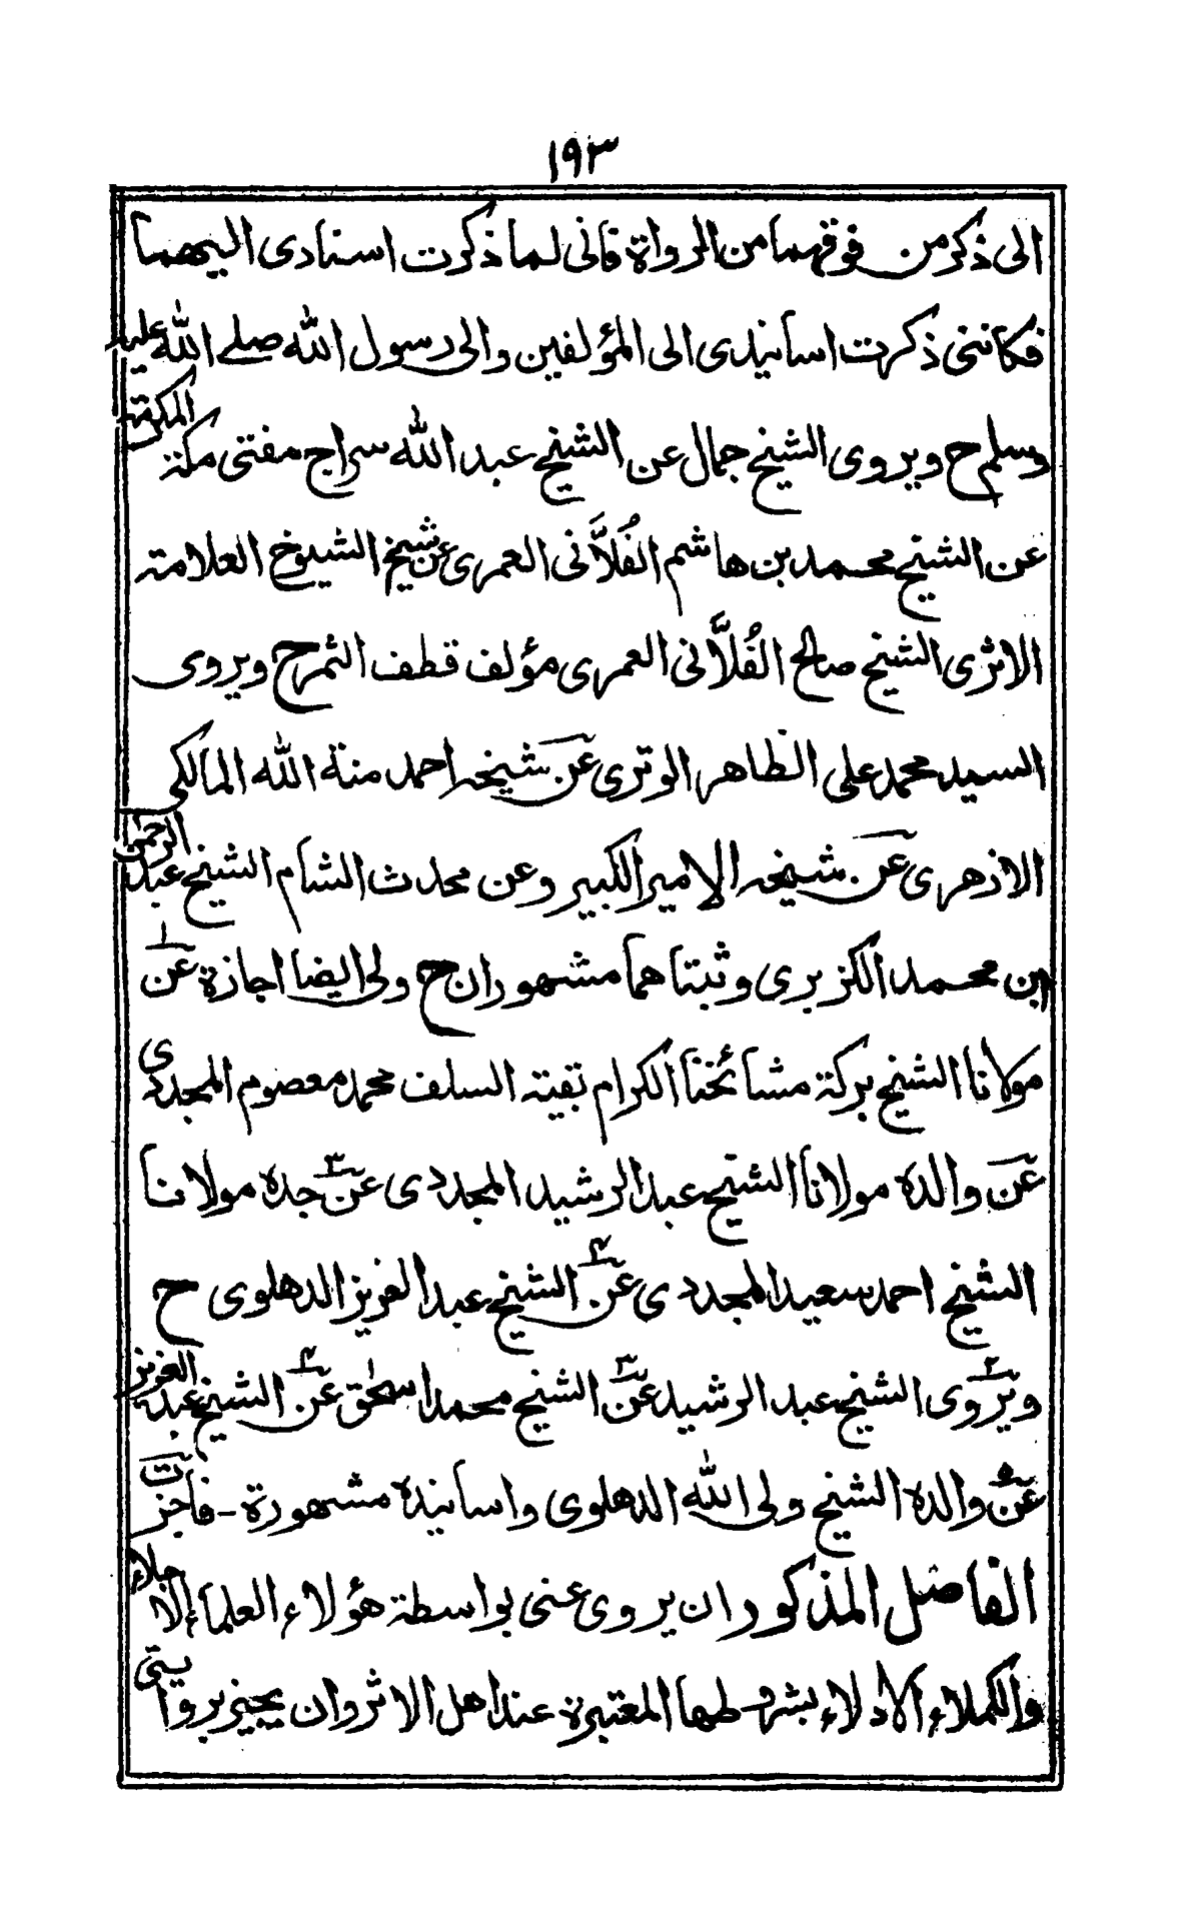 ١٩٣
الى ذكر من فوقهما من الرواة فانى لما ذكرت اسنادى اليهما
فكاننى ذكرت اسانيدى الى المؤلفين والى رسول الله صلے الله عليه
وسلم ح ويروى الشيخ جمال عن الشيخ عبد الله سراج مفتى مكة المكرمة
عن الشيخ محمد بن هاشم الفُلاَّنى العمرى عن شيخ الشيوخ العلامة
الاثرى الشيخ صالح الفُلاَّنى العمرى مؤلف قطف الثمر ح ويروى
السيد محمد على الظاهر الوترى عن شيخه احمد منة الله المالكى
الازهرى عن شيخه الامير الكبير وعن محدث الشام الشيخ عبد الرحمن
ابن محمد الكزبرى وثبتاهما مشهوران ح ولى ايضا اجازة عن ١
مولانا الشيخ بركة مشائخنا الكرام بقية السلف محمد معصوم المجددى
عن والده مولانا الشيخ عبد الرشيد المجددى عن ٣ جده مولانا
الشيخ احمد سعيد المجددى عن ٤ الشيخ عبد العزيز الدهلوى ح
ويروى ٢ الشيخ عبد الرشيد عن ٣ الشيخ محمد اسحٰق عن ٤ الشيخ عبد العزيز
عن ٥ والده الشيخ ولى الله الدهلوى واسانيده مشهورة - فاجزت
الفاضل المذكور ان يروى عنى بواسطة هؤلاء العلماء الاجلاء
والكملاء الادلاء بشروطها المعتبرة عند اهل الاثر وان يجيز بروايتى